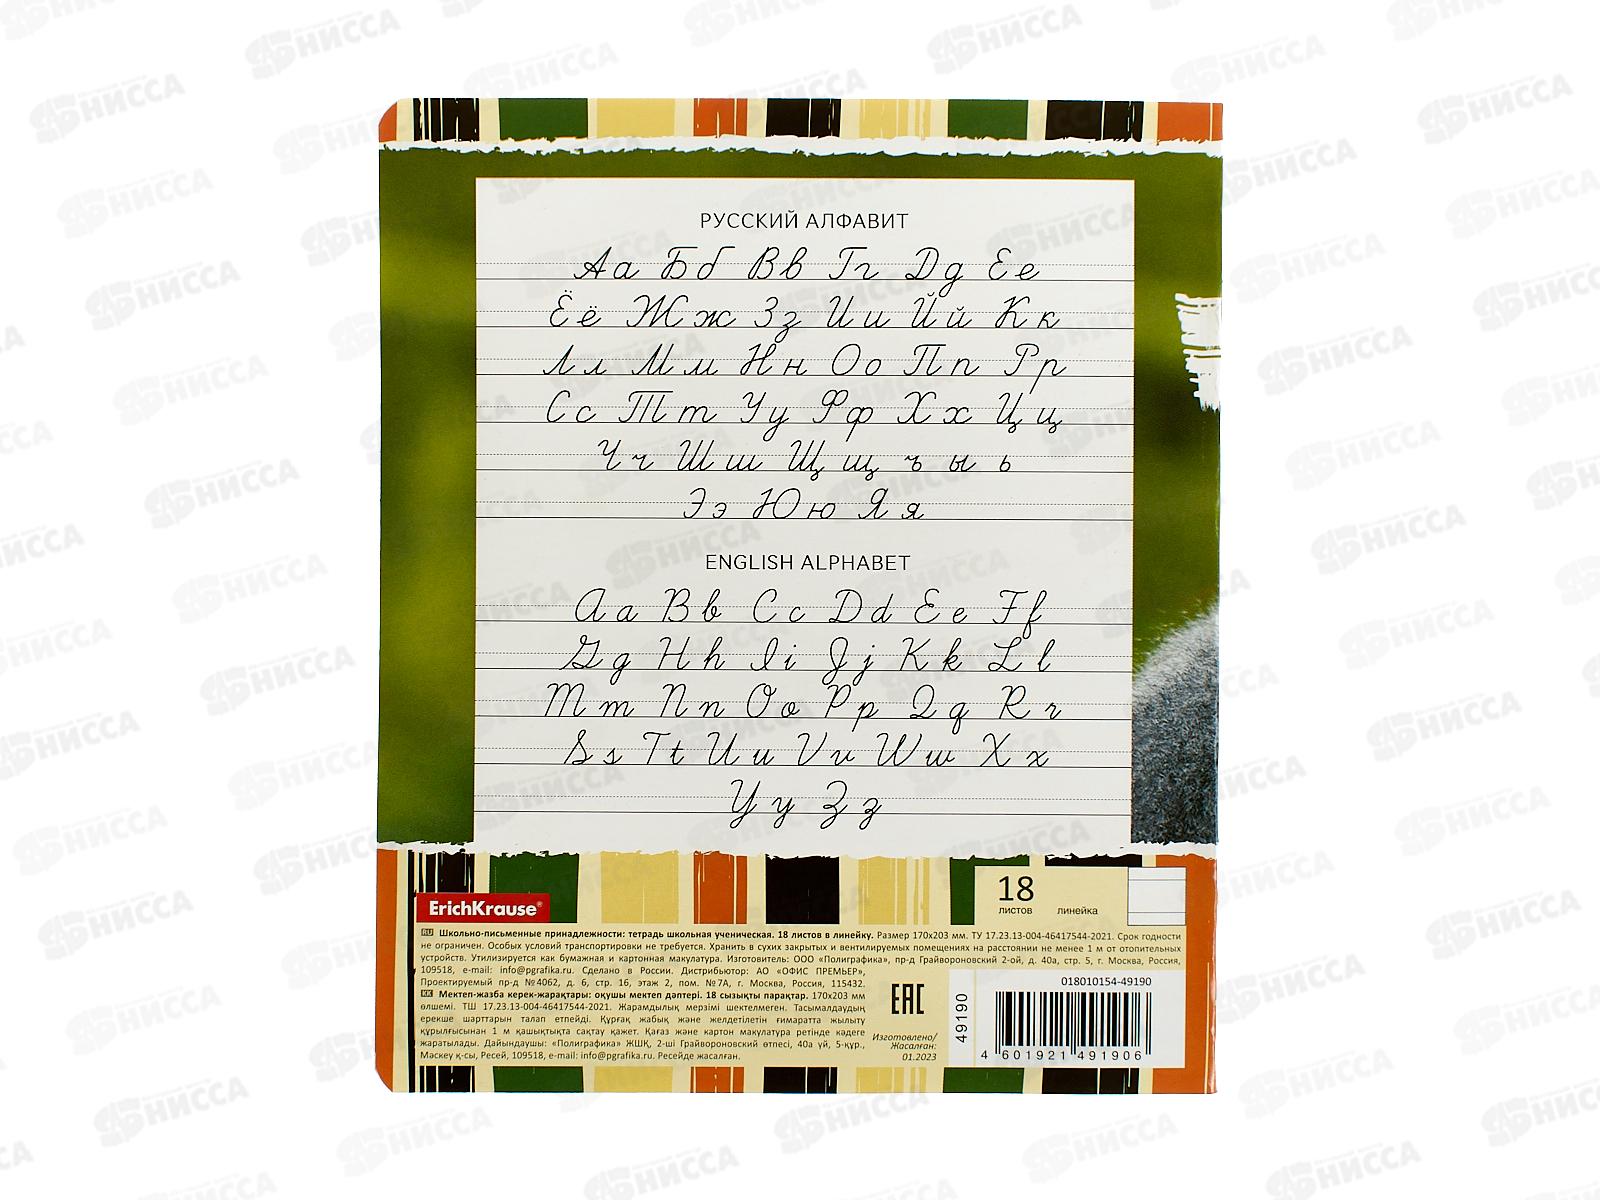 РУССКИЙ АЛФАВИТ
Аа Бб Вв Гг Дд Ее
Ёё Жж Зз Ии Йй Кк
Лл Мм Нн Оо Пп Рр
Сс Тт Уу Фф Хх Цц
Чч Шш Щщ ъ ы ь
Ээ Юю Яя
ENGLISH ALPHABET
Aa Bb Cc Dd Ee Ff
Gg Hh Ii Jj Kk Ll
Mm Nn Oo Pp Qq Rr
Ss Tt Uu Vv Ww Xx
Yy Zz
ErichKrause®
18
листов линейка
RU Школьно-письменные принадлежности: тетрадь школьная ученическая. 18 листов в линейку. Размер 170х203 мм. ТУ 17.23.13-004-46417544-2021. Срок годности
не ограничен. Особых условий транспортировки не требуется. Хранить в сухих закрытых и вентилируемых помещениях на расстоянии не менее 1 м от отопительных
устройств. Утилизируется как бумажная и картонная макулатура. Изготовитель: ООО «Полиграфика», пр-д Грайвороновский 2-ой, д. 40а, стр. 5, г. Москва, Россия,
109518, e-mail: info@pgrafika.ru. Сделано в России. Дистрибьютор: АО «ОФИС ПРЕМЬЕР»,
Проектируемый пр-д №4062, д. 6, стр. 16, этаж 2, пом. №7А, г. Москва, Россия, 115432.
KK Мектеп-жазба керек-жарақтары: оқушы мектеп дәптері. 18 сызықты парақтар. 170х203 мм
өлшемі. ТШ 17.23.13-004-46417544-2021. Жарамдылық мерзімі шектелмеген. Тасымалдаудың
ерекше шарттарын талап етпейді. Құрғақ жабық және желдетілетін ғимаратта жылыту
құрылғысынан 1 м қашықтықта сақтау қажет. Қағаз және картон макулатура ретінде кәдеге
жаратылады. Дайындаушы: «Полиграфика» ЖШҚ, 2-ші Грайвороновский өтпесі, 40а үй, 5-құр.,
Мәскеу қ-сы, Ресей, 109518, e-mail: info@pgrafika.ru. Ресейде жасалған.
EAC
Изготовлено/
Жасалған:
01.2023
49190
018010154-49190
4 601921 491906
НИССА